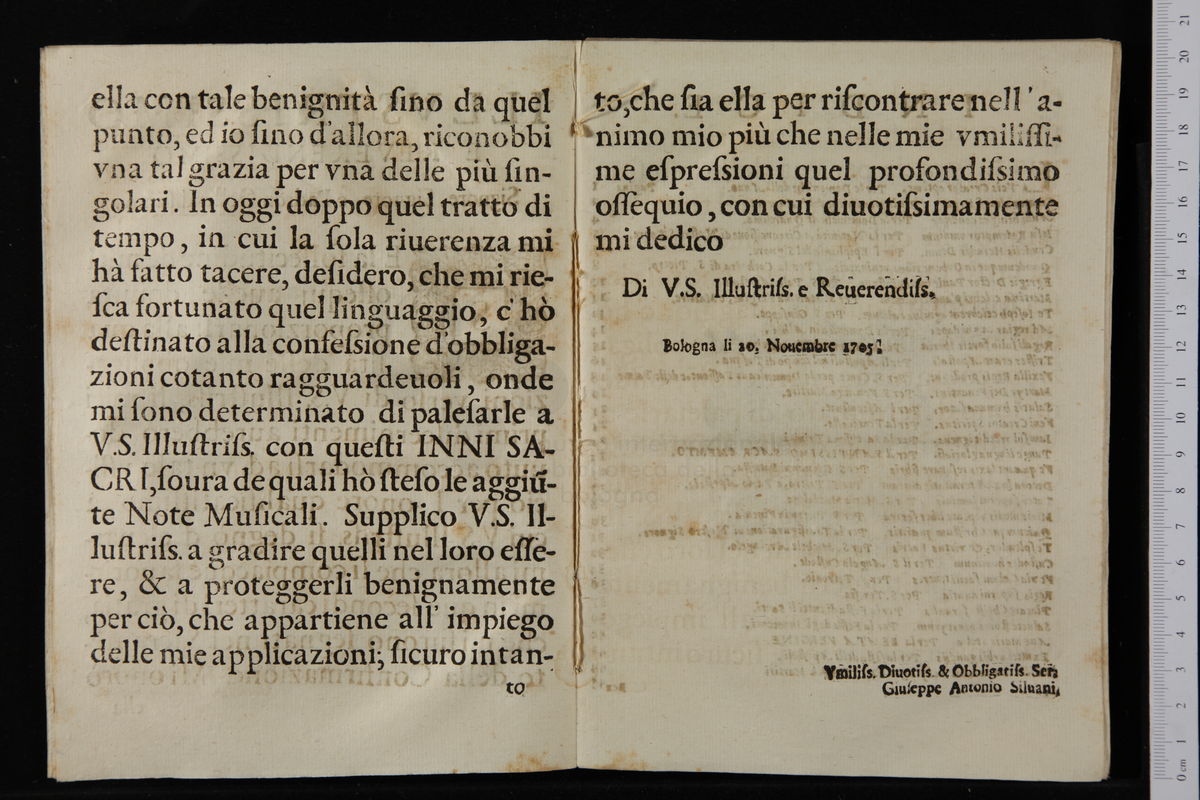 ella con tale benignità ſino da quel
punto, ed io ſino d'allora, riconobbi
vna tal grazia per vna delle più ſin-
golari. In oggi doppo quel tratto di
tempo, in cui la ſola riuerenza mi
hà fatto tacere, deſidero, che mi rie-
ſca fortunato quel linguaggio, c' hò
deſtinato alla confeſsione d'obbliga-
zioni cotanto ragguardeuoli, onde
mi ſono determinato di paleſarle a
V.S. Illuſtriſs. con queſti INNI SA-
CRI, ſoura de quali hò ſteſo le aggiũ-
te Note Muſicali. Supplico V.S. Il-
luſtriſs. a gradire quelli nel loro eſſe-
re, & a proteggerli benignamente
per ciò, che appartiene all' impiego
delle mie applicazioni; ſicuro intan-
to
to, che ſia ella per riſcontrare nell' a-
nimo mio più che nelle mie vmiliſſi-
me eſpreſsioni quel profondiſsimo
oſſequio, con cui diuotiſsimamente
mi dedico
Di V.S. Illuſtriſs. e Reuerendiſs.
Bologna li 20. Nouembre 1705.
Vmiliſs. Diuotiſs. & Obbligatiſs. Ser.
Giuſeppe Antonio Siluani.
0 cm 1 2 3 4 5 6 7 8 9 10 11 12 13 14 15 16 17 18 19 20 21